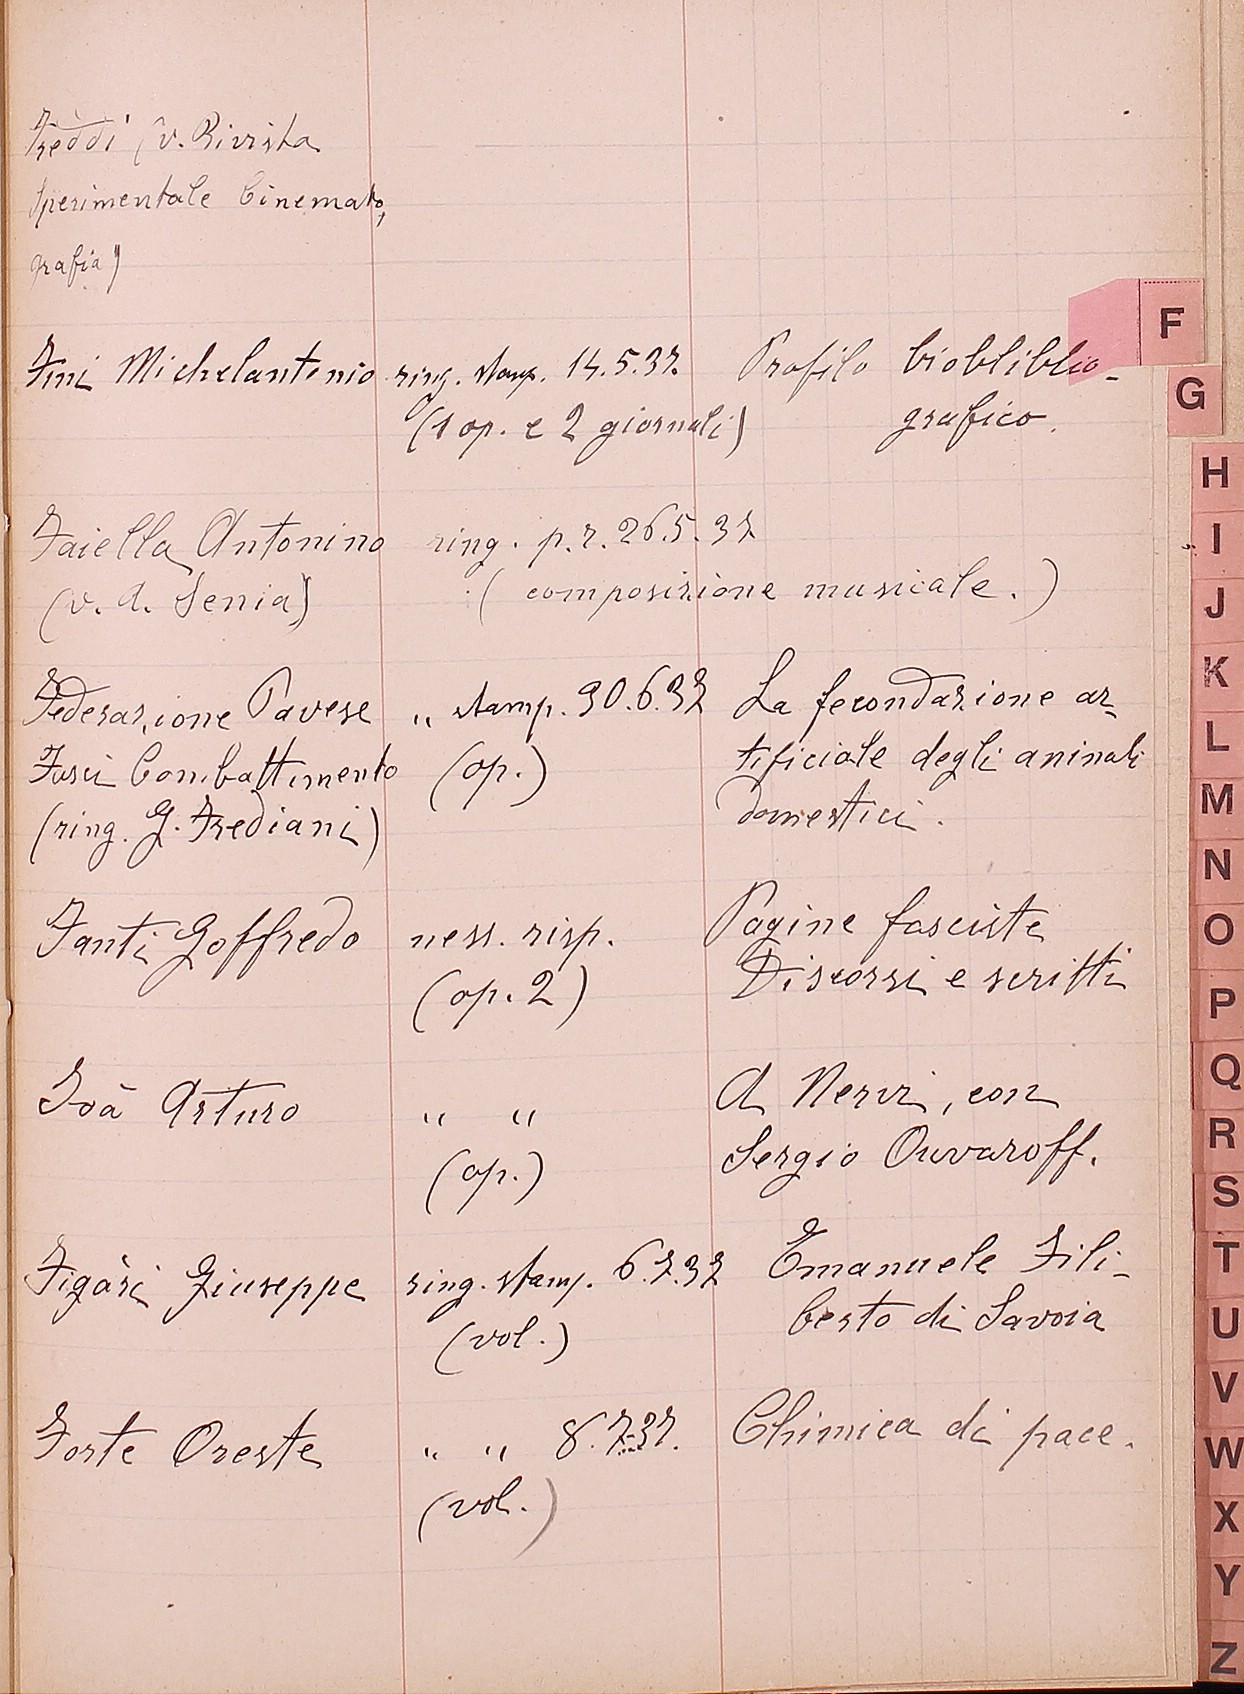 Freddi (v. Rivista
Sperimentale Cinemato,
grafia)
Fini Michelantonio ring. stamp. 14.5.37. Profilo biobliblio-
(1 op. e 2 giornali) grafico.
Faiella Antonino ring. p.r. 26.5.37
(v. A. Senia) (composizione musicale.)
Federazione Pavese " stamp. 30.6.37 La fecondazione ar-
Fasci Combattimento (op.) tificiale degli animali
(ring. G. Frediani) domestici.
Fanti Goffredo ness. risp. Pagine fasciste
(op. 2) Discorsi e scritti
Foà Arturo " " A Nervi, con
(op.) Sergio Ouvaroff.
Figàri Giuseppe ring. stamp. 6.7.37 Emanuele Fili-
(vol.) berto di Savoia
Forte Oreste " " 8.7.37. Chimica di pace.
(vol.)
F
G
H
I
J
K
L
M
N
O
P
Q
R
S
T
U
V
W
X
Y
Z